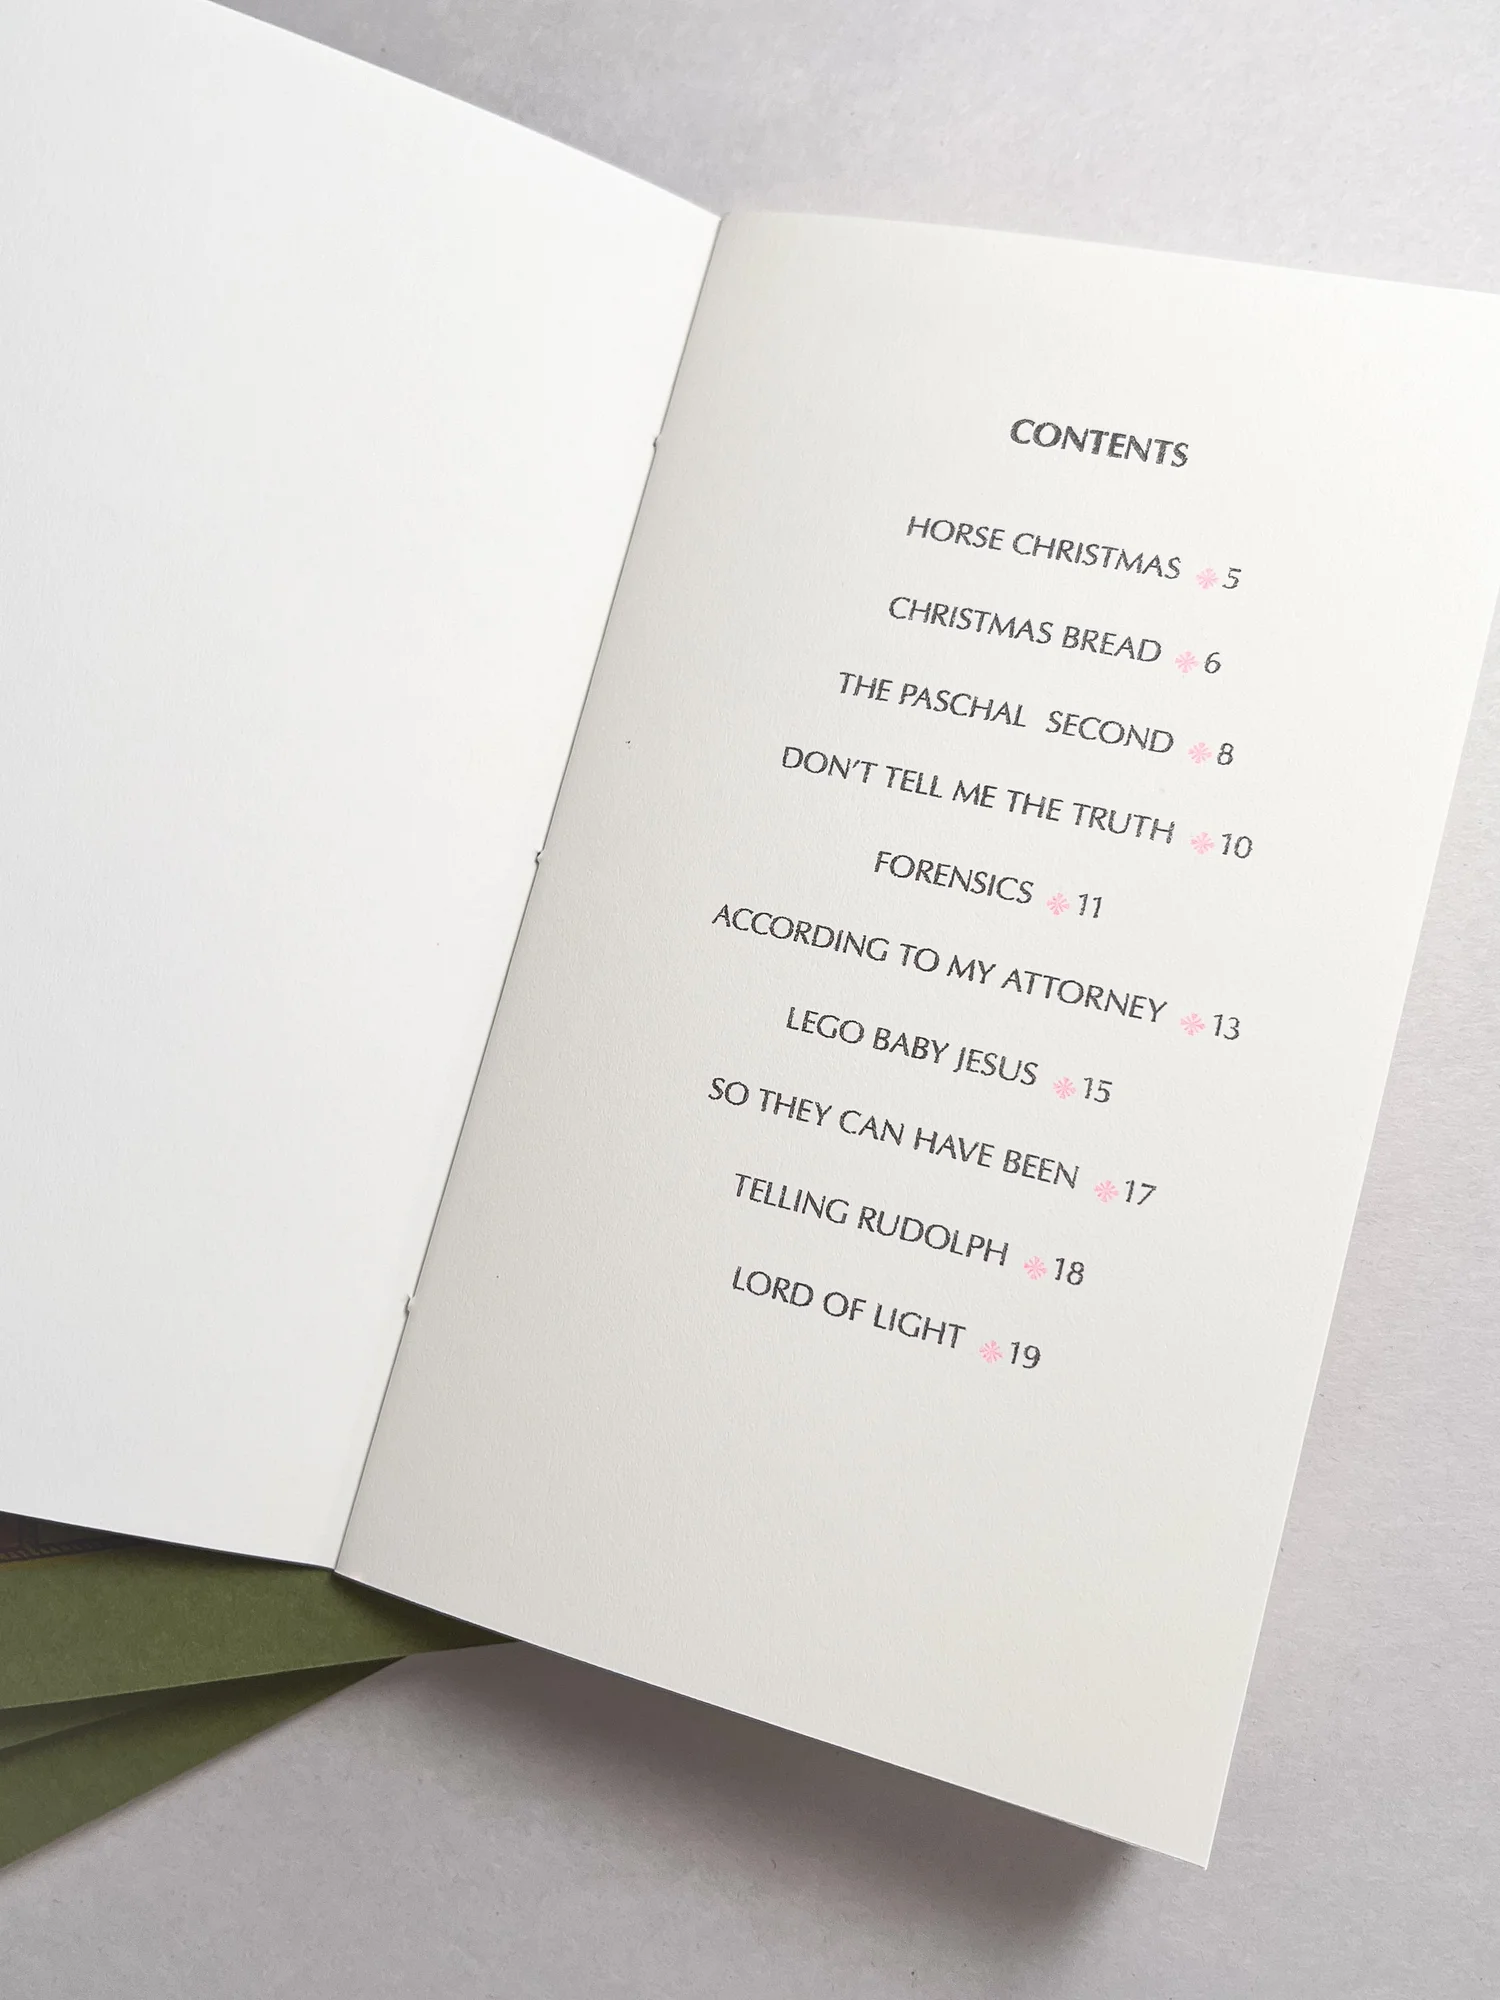 CONTENTS
HORSE CHRISTMAS 5
CHRISTMAS BREAD 6
THE PASCHAL SECOND 8
DON'T TELL ME THE TRUTH 10
FORENSICS 11
ACCORDING TO MY ATTORNEY 13
LEGO BABY JESUS 15
SO THEY CAN HAVE BEEN 17
TELLING RUDOLPH 18
LORD OF LIGHT 19